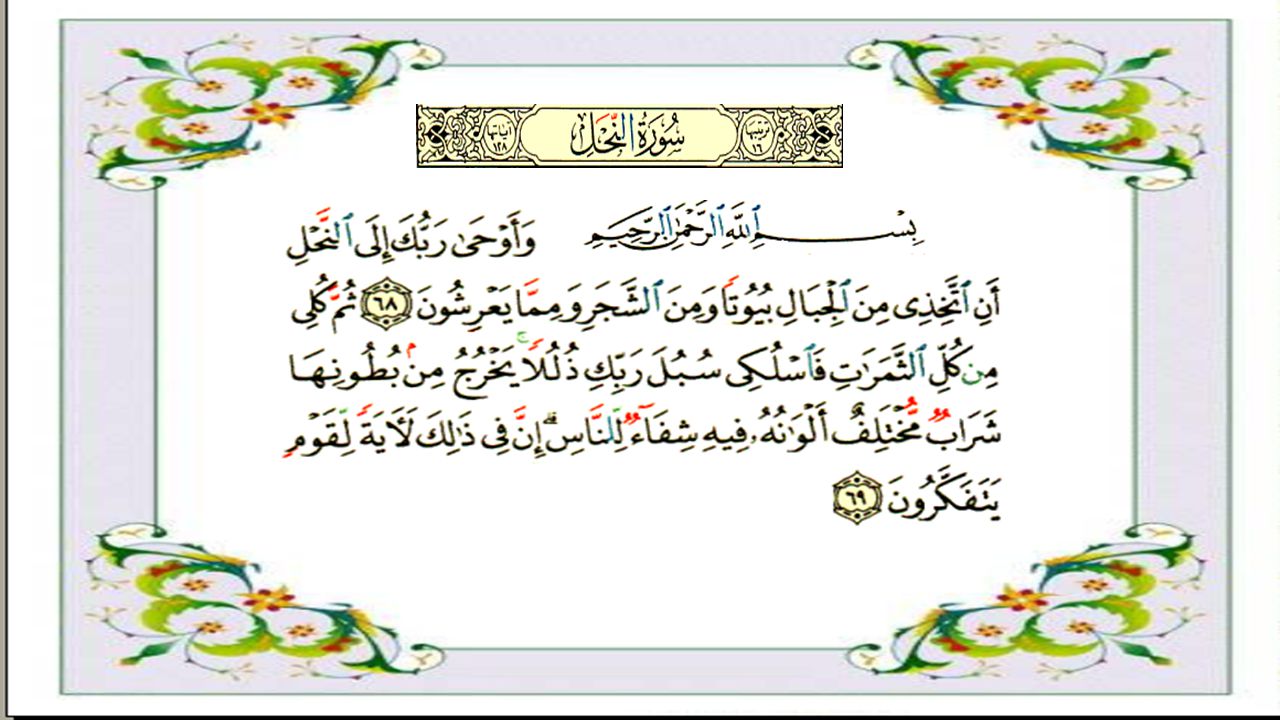 ترتيبها ١٦ سُورَةُ النَّحْلِ آياتها ١٢٨
بِسْمِ ٱللَّهِ ٱلرَّحْمَٰنِ ٱلرَّحِيمِ وَأَوْحَىٰ رَبُّكَ إِلَى ٱلنَّحْلِ
أَنِ ٱتَّخِذِى مِنَ ٱلْجِبَالِ بُيُوتًا وَمِنَ ٱلشَّجَرِ وَمِمَّا يَعْرِشُونَ ٦٨ ثُمَّ كُلِى
مِن كُلِّ ٱلثَّمَرَٰتِ فَٱسْلُكِى سُبُلَ رَبِّكِ ذُلُلًا ۚ يَخْرُجُ مِنۢ بُطُونِهَا
شَرَابٌ مُّخْتَلِفٌ أَلْوَٰنُهُۥ فِيهِ شِفَآءٌ لِّلنَّاسِ ۗ إِنَّ فِى ذَٰلِكَ لَـَٔايَةً لِّقَوْمٍ
يَتَفَكَّرُونَ ٦٩